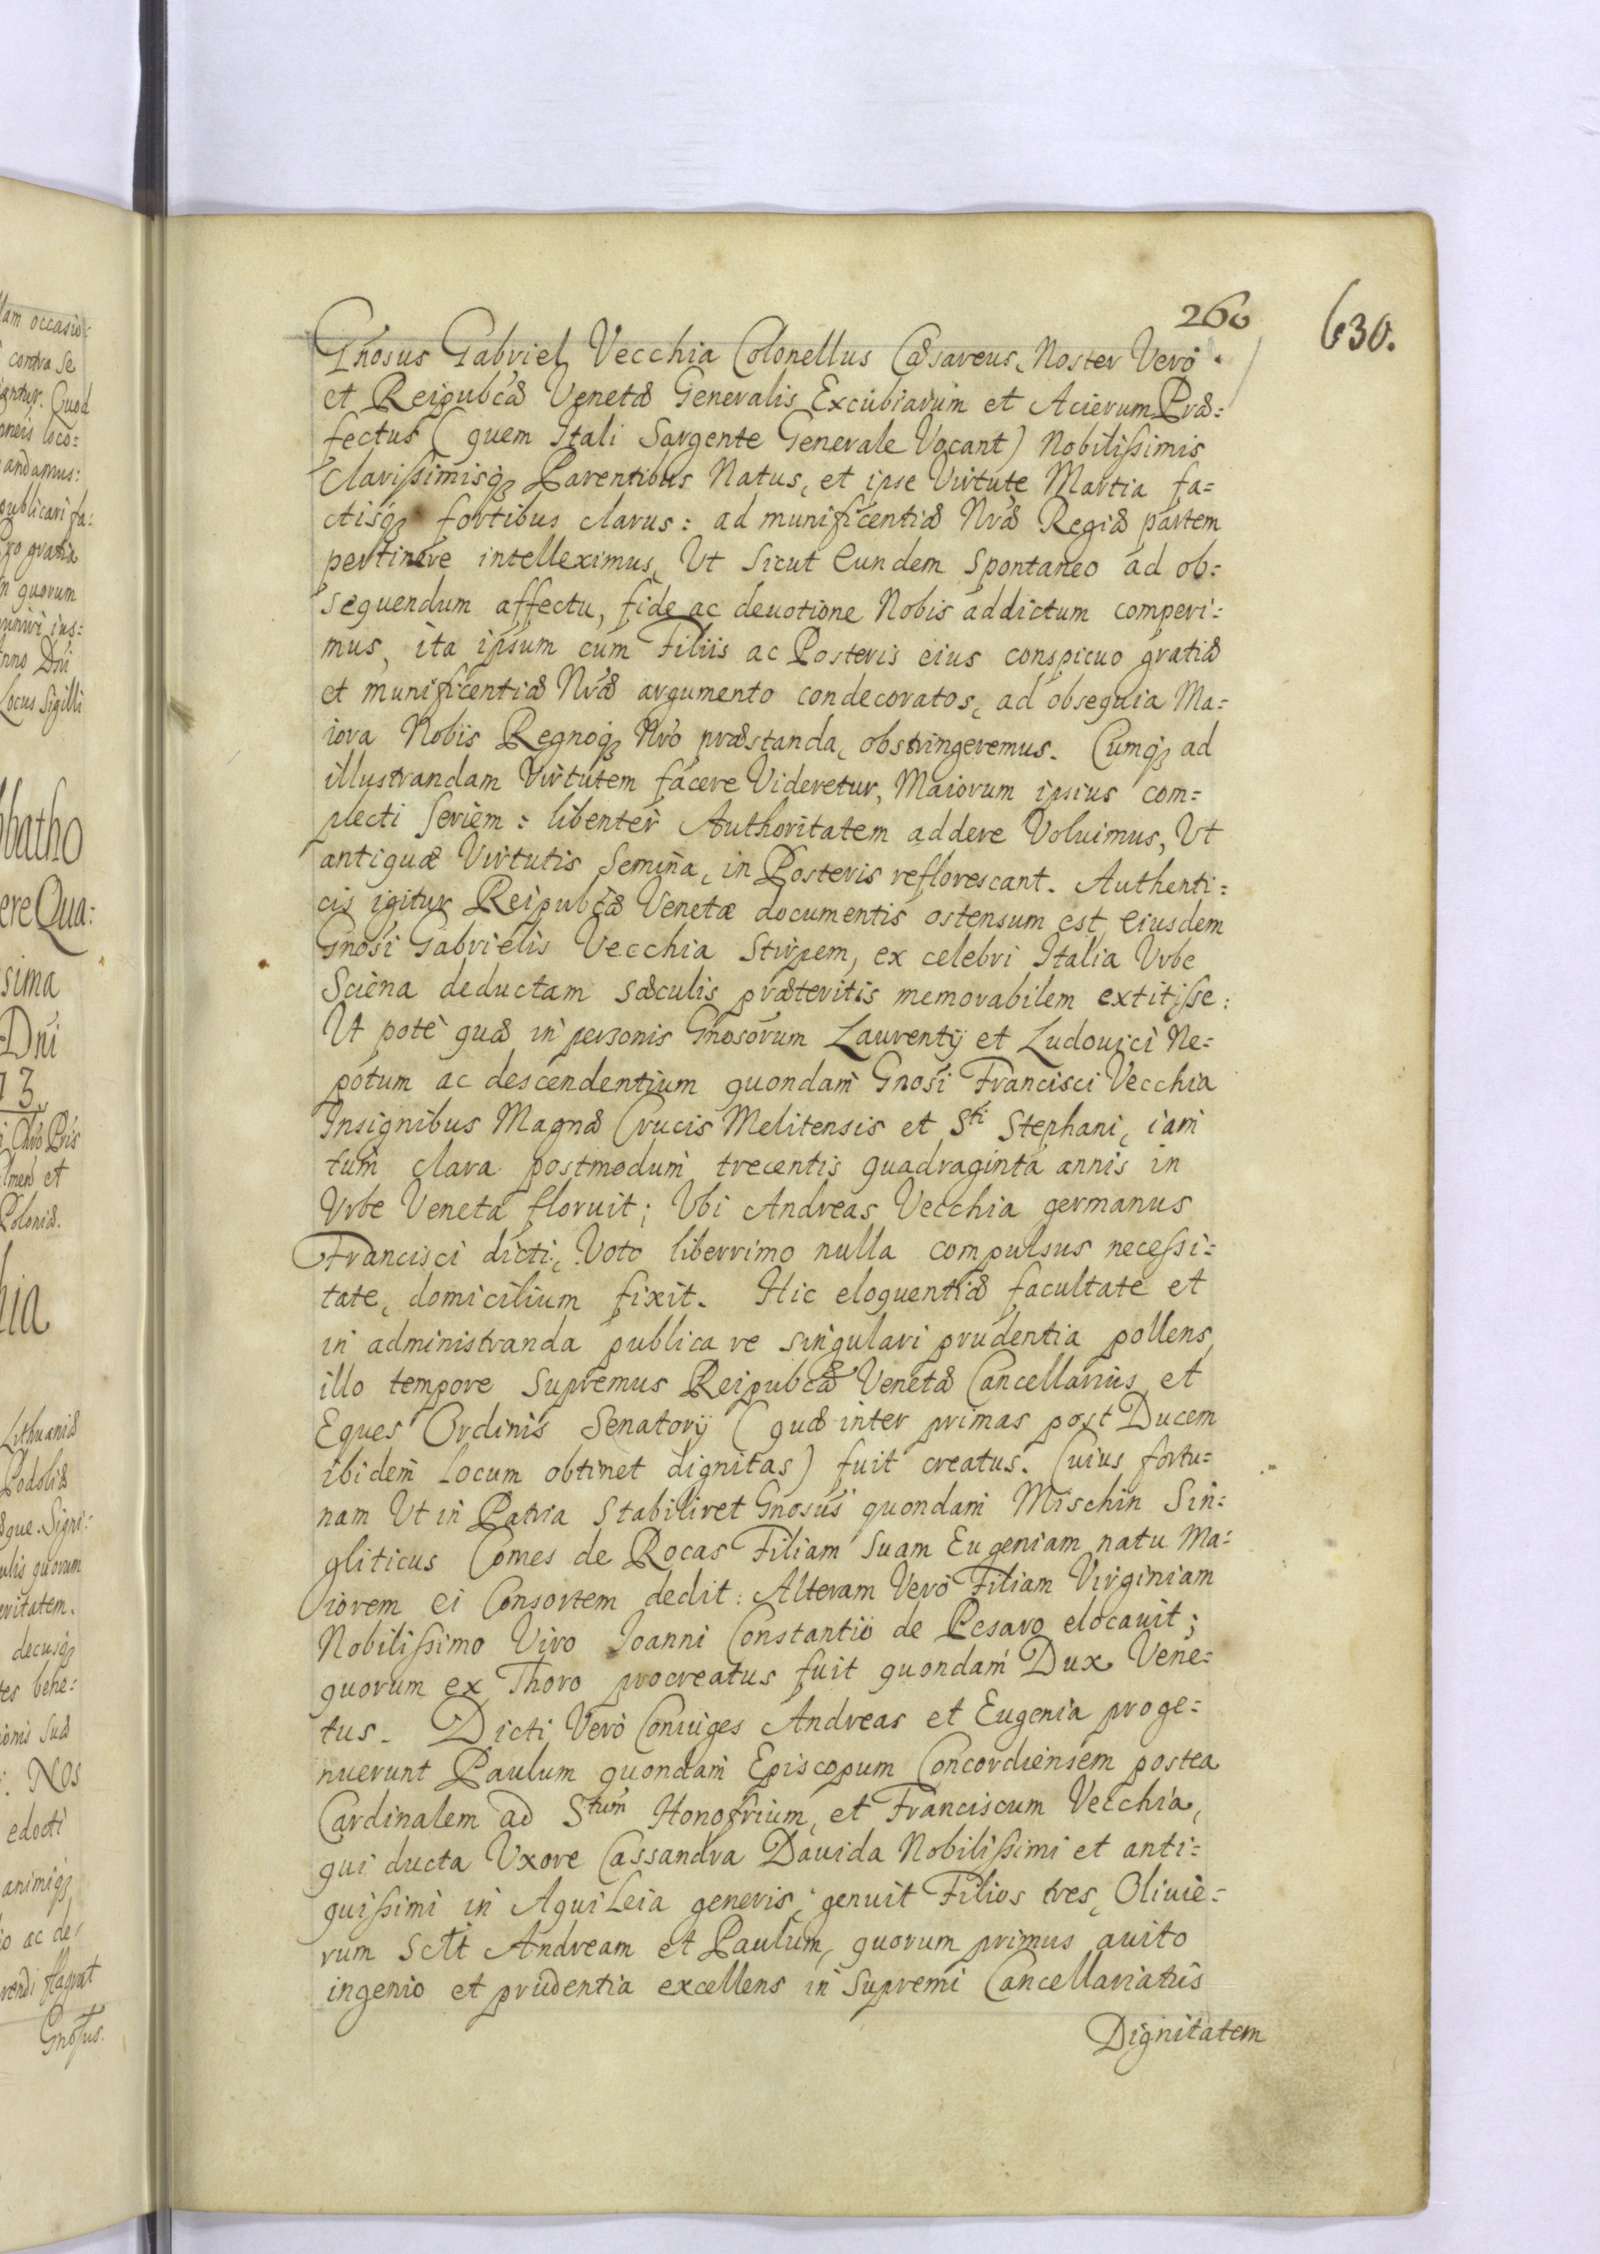 260
630.
Gnosus Gabriel Vecchia Colonellus Cæsareus, Noster Verò
et Reipubcæ Venetæ Generalis Excubiarum et Acierum Præ=
fectus (quem Itali Sargente Generale Vocant) Nobilißimis
Clarißimisq; Parentibus Natus, et ipse Virtute Martia fa=
ctisq; fortibus clarus: ad munificentiæ Nræ Regiæ partem
pertinere intelleximus, Ut sicut Eundem spontaneo ad ob=
sequendum affectu, fide ac deuotione Nobis addictum comperi=
mus, ita ipsum cum Filiis ac Posteris eius conspicuo gratiæ
et munificentiæ Nræ argumento condecoratos, ad obsequia Ma=
iora Nobis Regnoq; Nro præstanda, obstringeremus. Cumq; ad
illustrandam Virtutem facere Videretur, Maiorum ipsius com=
plecti Seriem: libenter Authoritatem addere Voluimus, Ut
antiquæ Virtutis Semina, in Posteris reflorescant. Authenti=
cis igitur Reipubcæ Venetæ documentis ostensum est, eiusdem
Gnosi Gabrielis Vecchia Stirpem, ex celebri Italia Vrbe
Sciena deductam sæculis præteritis memorabilem extitiße:
Ut poté quæ in personis Gnosorum Laurentij et Ludouici Ne=
potum ac descendentium quondam Gnosi Francisci Vecchia
Insignibus Magnæ Crucis Melitensis et Sti Stephani, iam
tum clara postmodum trecentis quadraginta annis in
Vrbe Veneta floruit; Vbi Andreas Vecchia germanus
Francisci dicti, Voto liberrimo nulla compulsus neceßi=
tate, domicilium fixit. Hic eloquentiæ facultate et
in administranda publica re singulari prudentia pollens,
illo tempore Supremus Reipubcæ Venetæ Cancellarius et
Eques Ordinis Senatorij (quæ inter primas post Ducem
ibidem Locum obtinet dignitas) fuit creatus. Cuius fortu=
nam Ut in Patria Stabiliret Gnosus quondam Mischin Sin=
gliticus Comes de Rocas Filiam suam Eugeniam natu Ma=
iorem ei Consortem dedit: Alteram Verò Filiam Virginiam
Nobilißimo Viro Joanni Constantio de Pesaro elocauit;
quorum ex Thoro procreatus fuit quondam Dux Vene=
tus. Dicti Verò Coniuges Andreas et Eugenia proge=
nuerunt Paulum quondam Episcopum Concordiensem postea
Cardinalem ad Stum Honofrium, et Franciscum Vecchia,
qui ducta Uxore Cassandra Dauida Nobilißimi et anti=
quißimi in AquiLeia generis, genuit Filios tres, Oliuie=
rum sctt Andream et Paulum, quorum primus auito
ingenio et prudentia excellens in Supremi Cancellariatus
Dignitatem